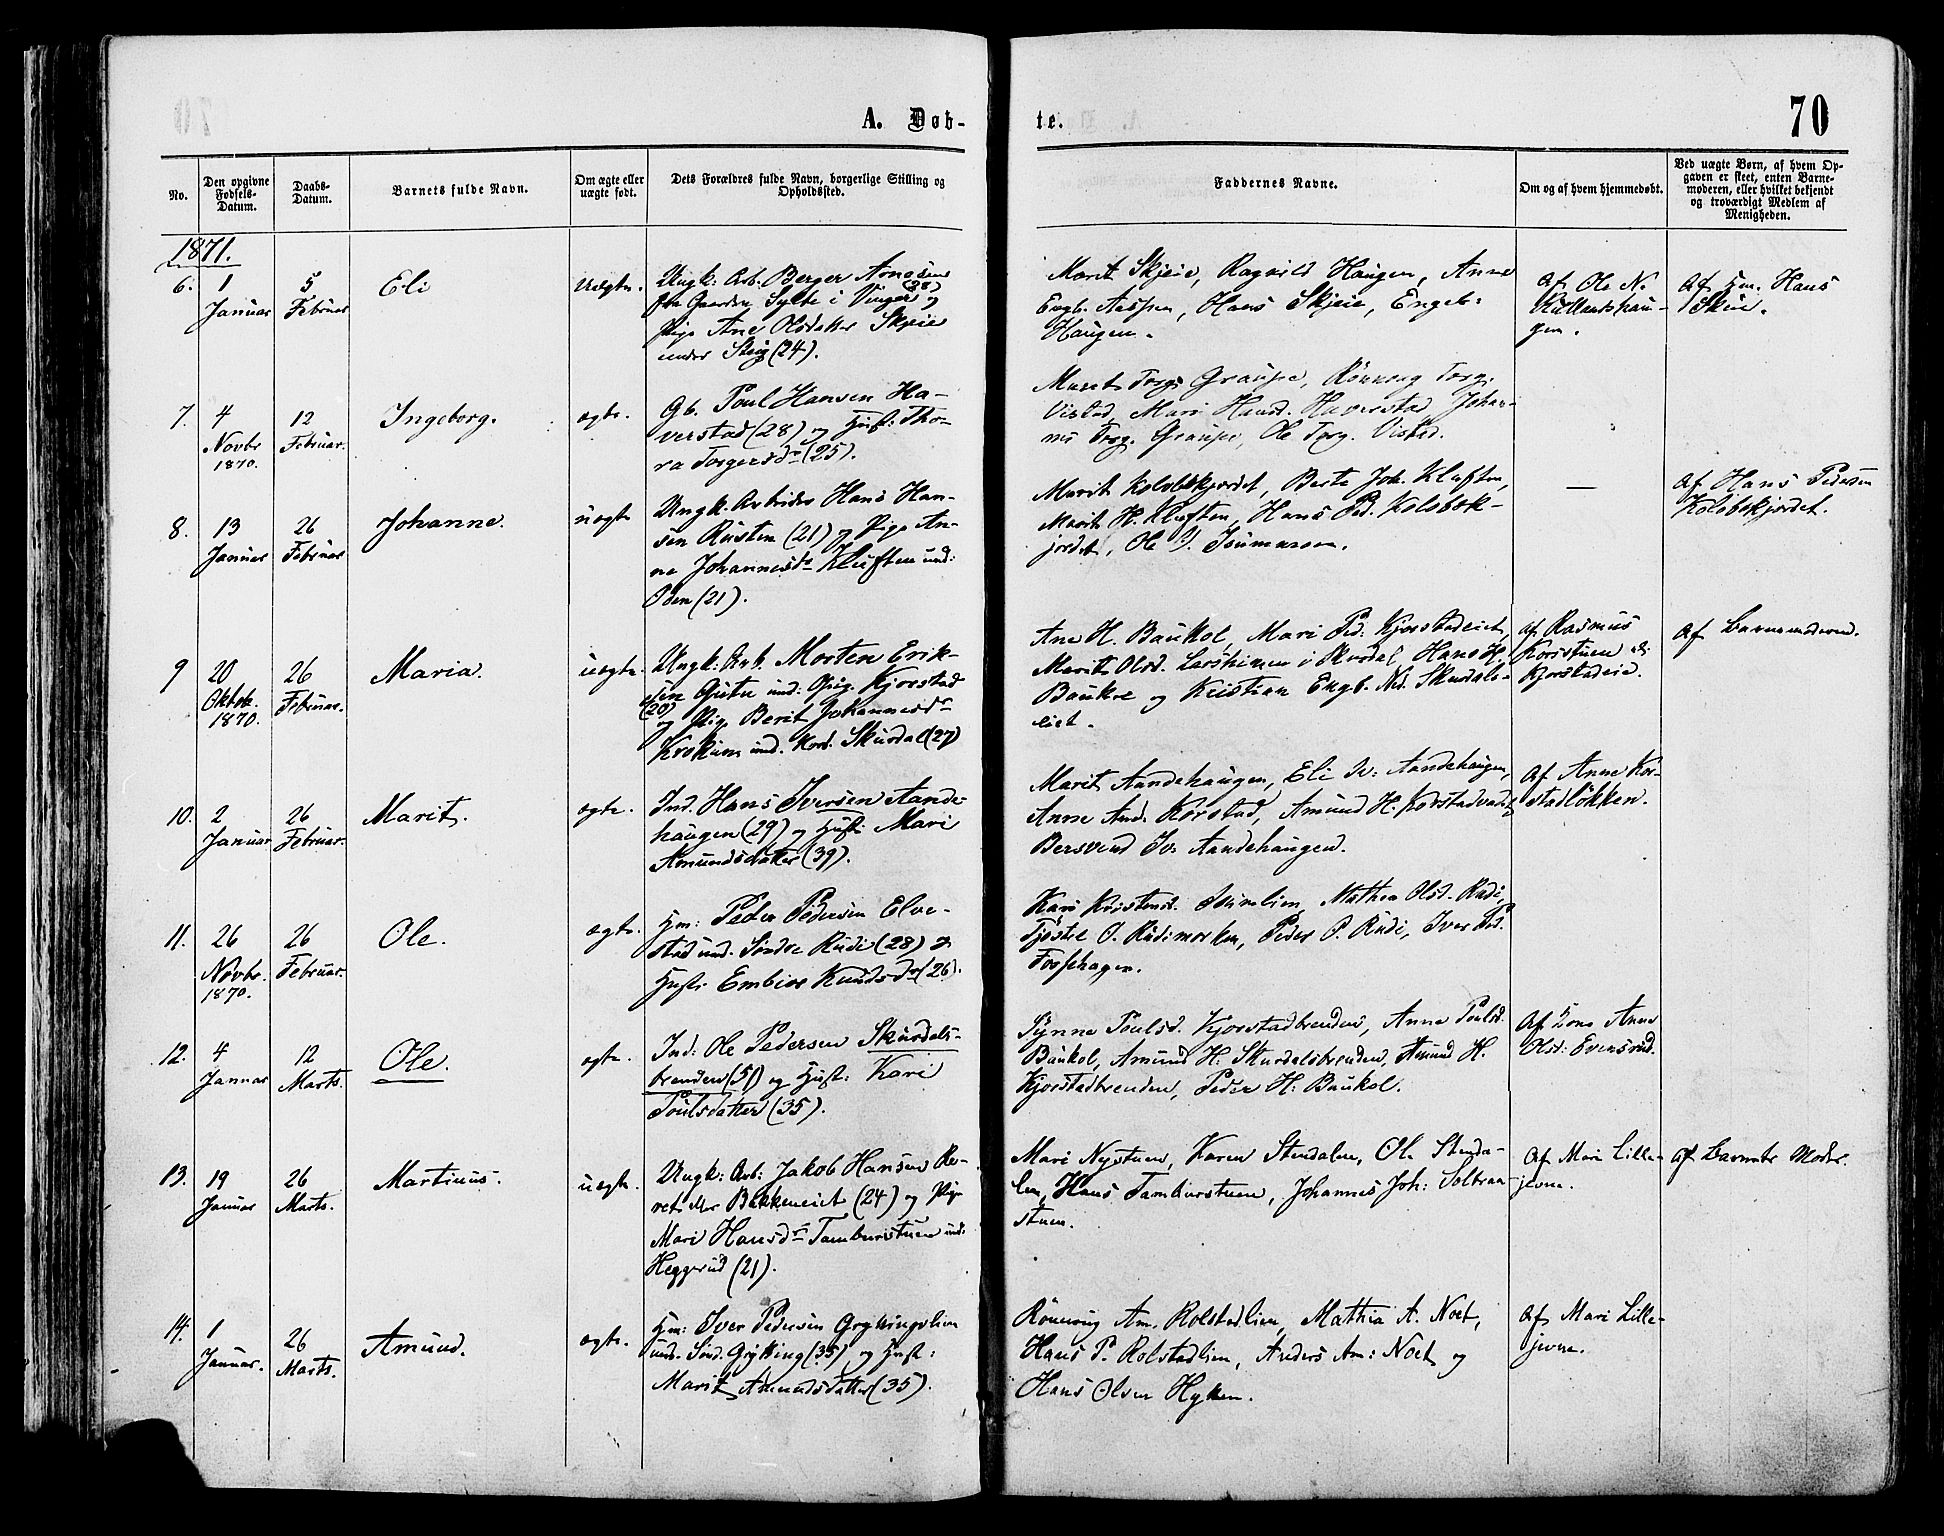 A. Døb-
te.
70
No.
Den opgivne Fødsels-Datum.
Daabs-Datum.
Barnets fulde Navn.
Om ægte eller uægte født.
Dets Forældres fulde Navn, borgerlige Stilling og Opholdssted.
Faddernes Navne.
Om og af hvem hjemmedøbt.
Ved uægte Børn, af hvem Opgaven er skeet, enten Barnemoderen, eller hvilket bekjendt og troværdigt Medlem af Menigheden.
1871.
6. 1 Januar
5 Februar
Eli
Uægte.
Ungk: Arb. Berger Arnesen (28)
fra Gaarden Sylte i Vinger og
Pige Ane Olsdatter Skjeie
under Steig (24).
Marit Skjeie, Ragnild Haugen, Anne
Engb. Aaspen, Hans Skjeie, Engeb:
Haugen.
Af Ole N.
Af Hm. Hans
Skjeie.
7. 4 Novbr 1870.
12 Februar.
Ingeborg.
ægte.
Gb. Poul Hansen Ha-
verstad (28) og Hust: Tho-
ra Torgersdr (25).
Marit Torg. Graupe, Rønnoug Torg.
Vistad, Mari Hansd. Haverstad, Johan-
nes Torg. Graupe, Ole Torg. Vistad.
—
8. 13 Januar
26 Februar
Johanne.
uægte
Ungk. Arbeider Hans Han-
sen Rusten (21) og Pige An-
ne Johannesdr Kluften und:
Oden (21).
Marit Kolobekjordet, Berte Joh. Kluften,
Marit H. Kluften, Hans Ped. Kolobek-
jordet, Ole
—
Af Hans Pedersen
Kolobekjordet.
9 20 Oktob. 1870.
26 Februar.
Maria.
uægte.
Ungk: Arb. Morten Erik-
sen und: Kjorstad
(20) og Pige Berit Johannesdr
Krokum und. Nord. Skurdal (27)
Ane H. Baukol, Mari Ped: Kjorstadeiet,
Marit Olsd. i Skurdal, Hans H.
og Kristian Engb. Ned. Skurdals-
eiet.
af Rasmus
Korsstuen
Kjorstadeie.
Af Barnemoderen.
10. 2 Januar
26 Februar.
Marit.
ægte.
Ind. Hans Iversen Aande-
haugen (29) og Hust: Mari
Amundsdatter (39).
Marit Aandehaugen, Eli Iv: Aandehaugen,
Anne Amd. Korstad, Amund H.
Bersvend Iv: Aandehaugen.
Af Anne Kor-
stadløkken.
11. 26 Novbr. 1870.
26 Februar.
Ole.
ægte.
Hm: Peder Pedersen Elve-
stad und. Søndre Rudi (28) og
Hust: Embior Knudsdr (26).
Kari Kristensd. Mathea Olsd. Rudi,
O. Rudimorken, Peder P. Rudi, Iver Ped.
Fossehagen.
12. 4 Januar
12 Marts.
Ole.
ægte.
Ind: Ole Pedersen Skurdals-
brenden (51) og Hust: Kari
Poulsdatter (35).
Synne Poulsd. Kjorstadbrenden, Anne Poulsd.
Baukol, Amund H: Skurdalsbrenden, Amund H.
Kjorstadbrenden, Peder H: Baukol.
Af Anne
Olsd:
13. 19 Januar
26 Marts.
Martinus.
uægte.
Ungk: Arb: Jakob Hansen
Bakkeneiet (24) og Pige
Mari Hansdr Tamburstuen und:
Heggerud (21).
Mari Nystuen, Karen Stendalen, Ole Stenda-
len, Hans Tamburstuen, Johannes Joh: Solbraa-
stuen.
Af Mari Lille-
jevne.
Af Barnets Moder.
14. 1 Januar.
26 Marts.
Amund.
ægte.
Hm: Iver Pedersen Gryttingslien
und. Sønd. Grytting (35) og Hust:
Marit Amundsdatter (35).
Rønnoug Am. Rolstadlien, Mathia A. Noet,
Hans P. Rolstadlien, Anders Am: Noet og
Hans Olsen Hyken.
Af Mari Lille-
jevne.